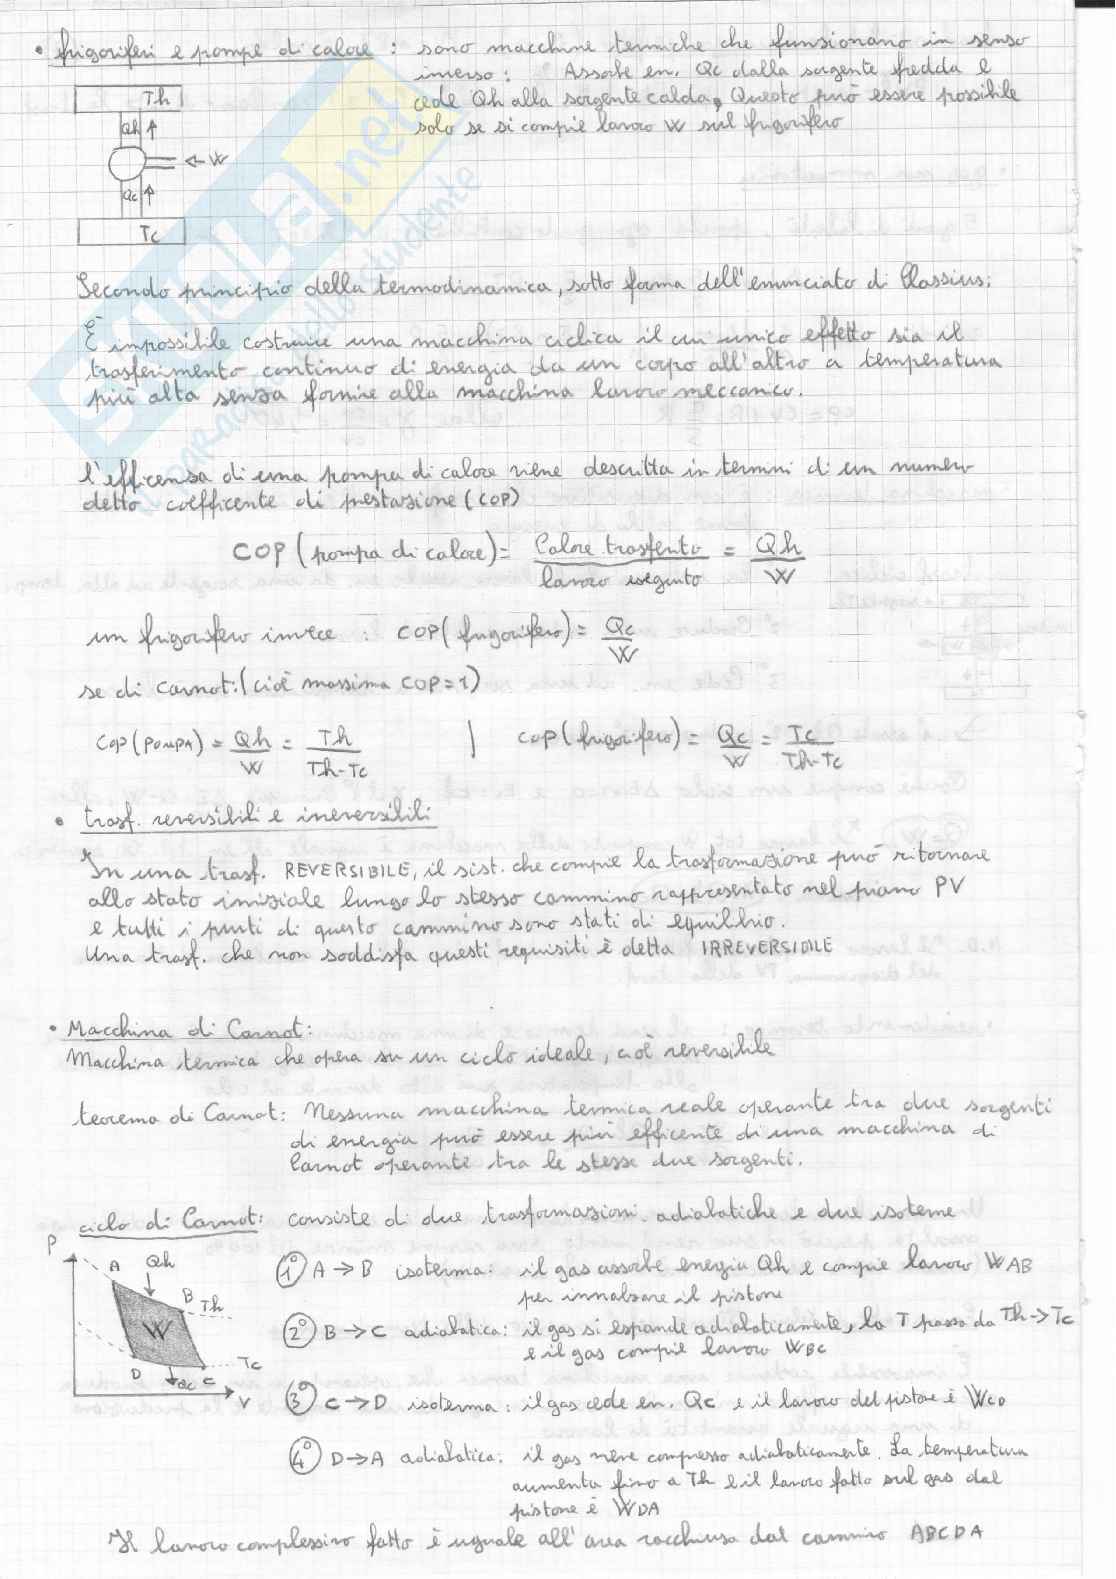 • frigoriferi e pompe di calore : sono macchine termiche che funzionano in senso
inverso: Assorbe en. Qc dalla sorgente fredda e
cede Qh alla sorgente calda, Questo può essere possibile
solo se si compie lavoro W sul frigorifero
Th
Qh ↑
← W
Qc ↑
Tc
Secondo principio della termodinamica, sotto forma dell'enunciato di Classius:
È impossibile costruire una macchina ciclica il cui unico effetto sia il
trasferimento continuo di energia da un corpo all'altro a temperatura
più alta senza fornire alla macchina lavoro meccanico.
l'efficenza di una pompa di calore viene descritta in termini di un numero
detto coefficente di prestazione (COP)
COP (pompa di calore) = Calore trasferito / lavoro eseguito = Qh / W
un frigorifero invece : COP (frigorifero) = Qc / W
se di Carnot: (cioè massima COP=1)
COP (POMPA) = Qh / W = Th / Th-Tc | COP (frigorifero) = Qc / W = Tc / Th-Tc
• trasf. reversibili e irreversibili
In una trasf. REVERSIBILE, il sist. che compie la trasformazione può ritornare
allo stato iniziale lungo lo stesso cammino rappresentato nel piano PV
e tutti i punti di questo cammino sono stati di equilibrio.
Una trasf. che non soddisfa questi requisiti è detta IRREVERSIBILE
• Macchina di Carnot:
Macchina termica che opera su un ciclo ideale, cioè reversibile
teorema di Carnot: Nessuna macchina termica reale operante tra due sorgenti
di energia può essere più efficente di una macchina di
Carnot operante tra le stesse due sorgenti.
ciclo di Carnot: consiste di due trasformazioni adiabatiche e due isoterme
P
A
Qh
B
Th
W
D
Qc
C
Tc
V
1° A → B isoterma: il gas assorbe energia Qh e compie lavoro WAB
per innalzare il pistone
2° B → C adiabatica: il gas si espande adiabaticamente, la T passa da Th → Tc
e il gas compie lavoro WBC
3° C → D isoterma: il gas cede en. Qc e il lavoro del pistone è WCD
4° D → A adiabatica: il gas viene compresso adiabaticamente. La temperatura
aumenta fino a Th e il lavoro fatto sul gas dal
pistone è WDA
Il lavoro complessivo fatto è uguale all'area racchiusa dal cammino ABCDA